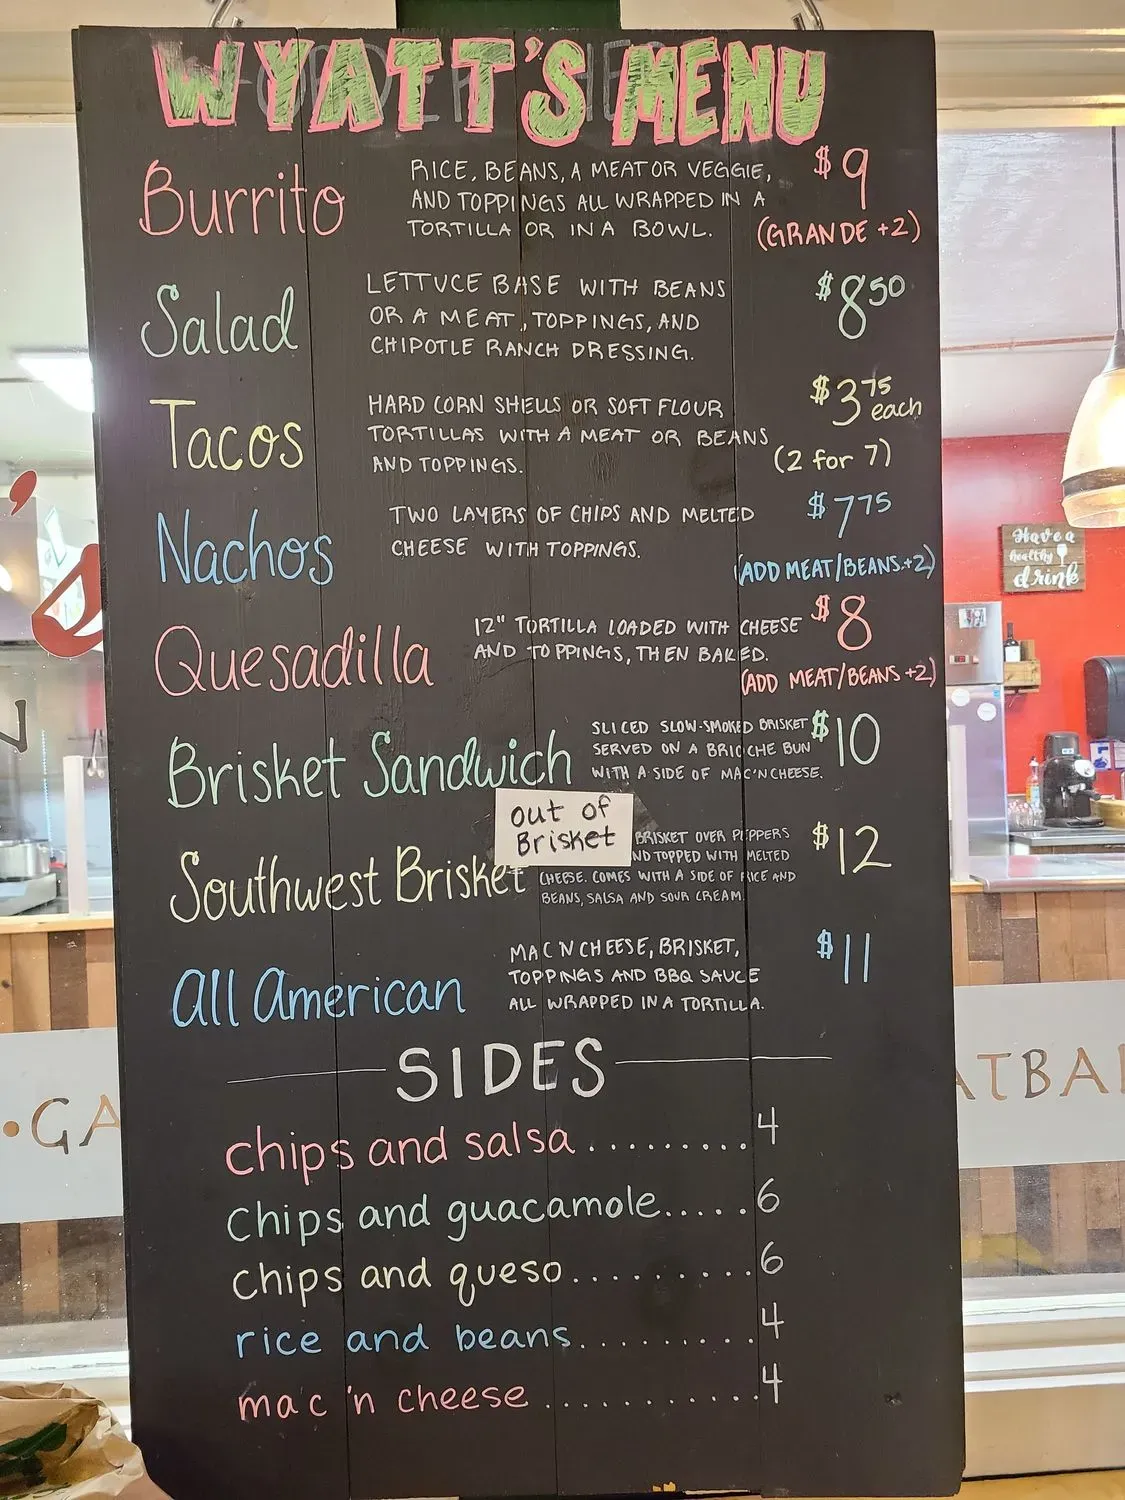 WYATT'S MENU
Burrito
RICE, BEANS, A MEAT OR VEGGIE,
AND TOPPINGS ALL WRAPPED IN A
TORTILLA OR IN A BOWL.
$9
(GRANDE +2)
Salad
LETTUCE BASE WITH BEANS
OR A MEAT, TOPPINGS, AND
CHIPOTLE RANCH DRESSING.
$8 50
Tacos
HARD CORN SHELLS OR SOFT FLOUR
TORTILLAS WITH A MEAT OR BEANS
AND TOPPINGS.
$3 75 each
(2 for 7)
Nachos
TWO LAYERS OF CHIPS AND MELTED
CHEESE WITH TOPPINGS.
$7 75
(ADD MEAT/BEANS +2)
Quesadilla
12" TORTILLA LOADED WITH CHEESE
AND TOPPINGS, THEN BAKED.
$8
(ADD MEAT/BEANS +2)
Brisket Sandwich
SLICED SLOW-SMOKED BRISKET
SERVED ON A BRIOCHE BUN
WITH A SIDE OF MAC'N CHEESE.
$10
out of
Brisket
Southwest Brisket
BRISKET OVER PEPPERS
ND TOPPED WITH MELTED
CHEESE. COMES WITH A SIDE OF RICE AND
BEANS, SALSA AND SOUR CREAM.
$12
All American
MAC N CHEESE, BRISKET,
TOPPINGS AND BBQ SAUCE
ALL WRAPPED IN A TORTILLA.
$11
SIDES
chips and salsa.........4
chips and guacamole.....6
chips and queso.........6
rice and beans.........4
mac 'n cheese...........4
Have a
healthy
drink
•GA
ATBA